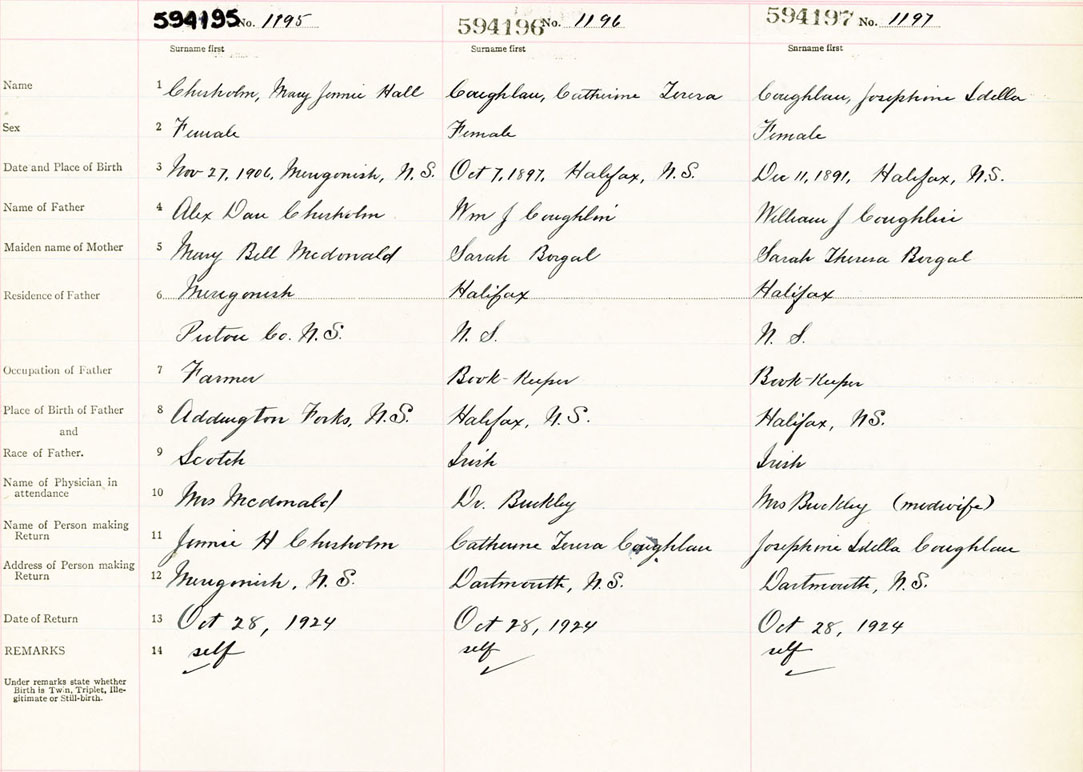 594195 No. 1195 594196 No. 1196 594197 No. 1197
Surname first Surname first Surname first
Name 1 Chisholm, Mary Jennie Hall Coughlan, Catherine Teresa Coughlan, Josephine Idella
Sex 2 Female Female Female
Date and Place of Birth 3 Nov 27, 1906, Merigonish, N.S. Oct 7, 1897, Halifax, N.S. Dec 11, 1891, Halifax, N.S.
Name of Father 4 Alex Dan Chisholm Wm J Coughlin William J Coughlin
Maiden name of Mother 5 Mary Bell Mcdonald Sarah Borgal Sarah Theresa Borgal
Residence of Father 6 Merigonish Halifax Halifax
Pictou Co. N.S. N. S. N. S.
Occupation of Father 7 Farmer Book-Keeper Book-Keeper
Place of Birth of Father 8 Addington Forks, N.S. Halifax, N.S. Halifax, NS.
and
Race of Father. 9 Scotch Irish Irish
Name of Physician in
attendance 10 Mrs Mcdonald Dr. Buckley Mrs Buckley (midwife)
Name of Person making
Return 11 Jennie H Chisholm Catherine Teresa Coughlan Josephine Idella Coughlan
Address of Person making
Return 12 Merigonish, N.S. Dartmouth, N.S. Dartmouth, N.S.
Date of Return 13 Oct 28, 1924 Oct 28, 1924 Oct 28, 1924
REMARKS 14 self self self
Under remarks state whether
Birth is Twin, Triplet, Ille-
gitimate or Still-birth.